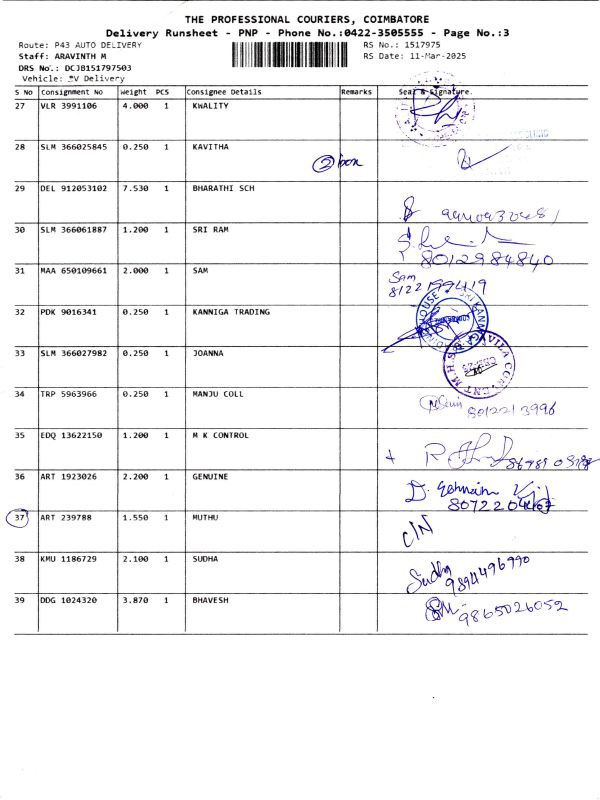 THE PROFESSIONAL COURIERS, COIMBATORE
Delivery Runsheet - PNP - Phone No.:0422-3505555 - Page No.:3
Route: P43 AUTO DELIVERY RS No.: 1517975
Staff: ARAVINTH M RS Date: 11-Mar-2025
DRS No.: DCJB151797503
Vehicle: PV Delivery
S No Consignment No Weight PCS Consignee Details Remarks Seal & Signature.
27 VLR 3991106 4.000 1 KWALITY
28 SLM 366025845 0.250 1 KAVITHA
2 box
29 DEL 912053102 7.530 1 BHARATHI SCH
30 SLM 366061887 1.200 1 SRI RAM
8012984840
31 MAA 650109661 2.000 1 SAM Sam
8122199419
32 PDK 9016341 0.250 1 KANNIGA TRADING
33 SLM 366027982 0.250 1 JOANNA
34 TRP 5963966 0.250 1 MANJU COLL
8012213996
35 EDQ 13622150 1.200 1 M K CONTROL
36 ART 1923026 2.200 1 GENUINE
37 ART 239788 1.550 1 MUTHU C/N
38 KMU 1186729 2.100 1 SUDHA Sudha
9894496990
39 DDG 1024320 3.870 1 BHAVESH 9865026052